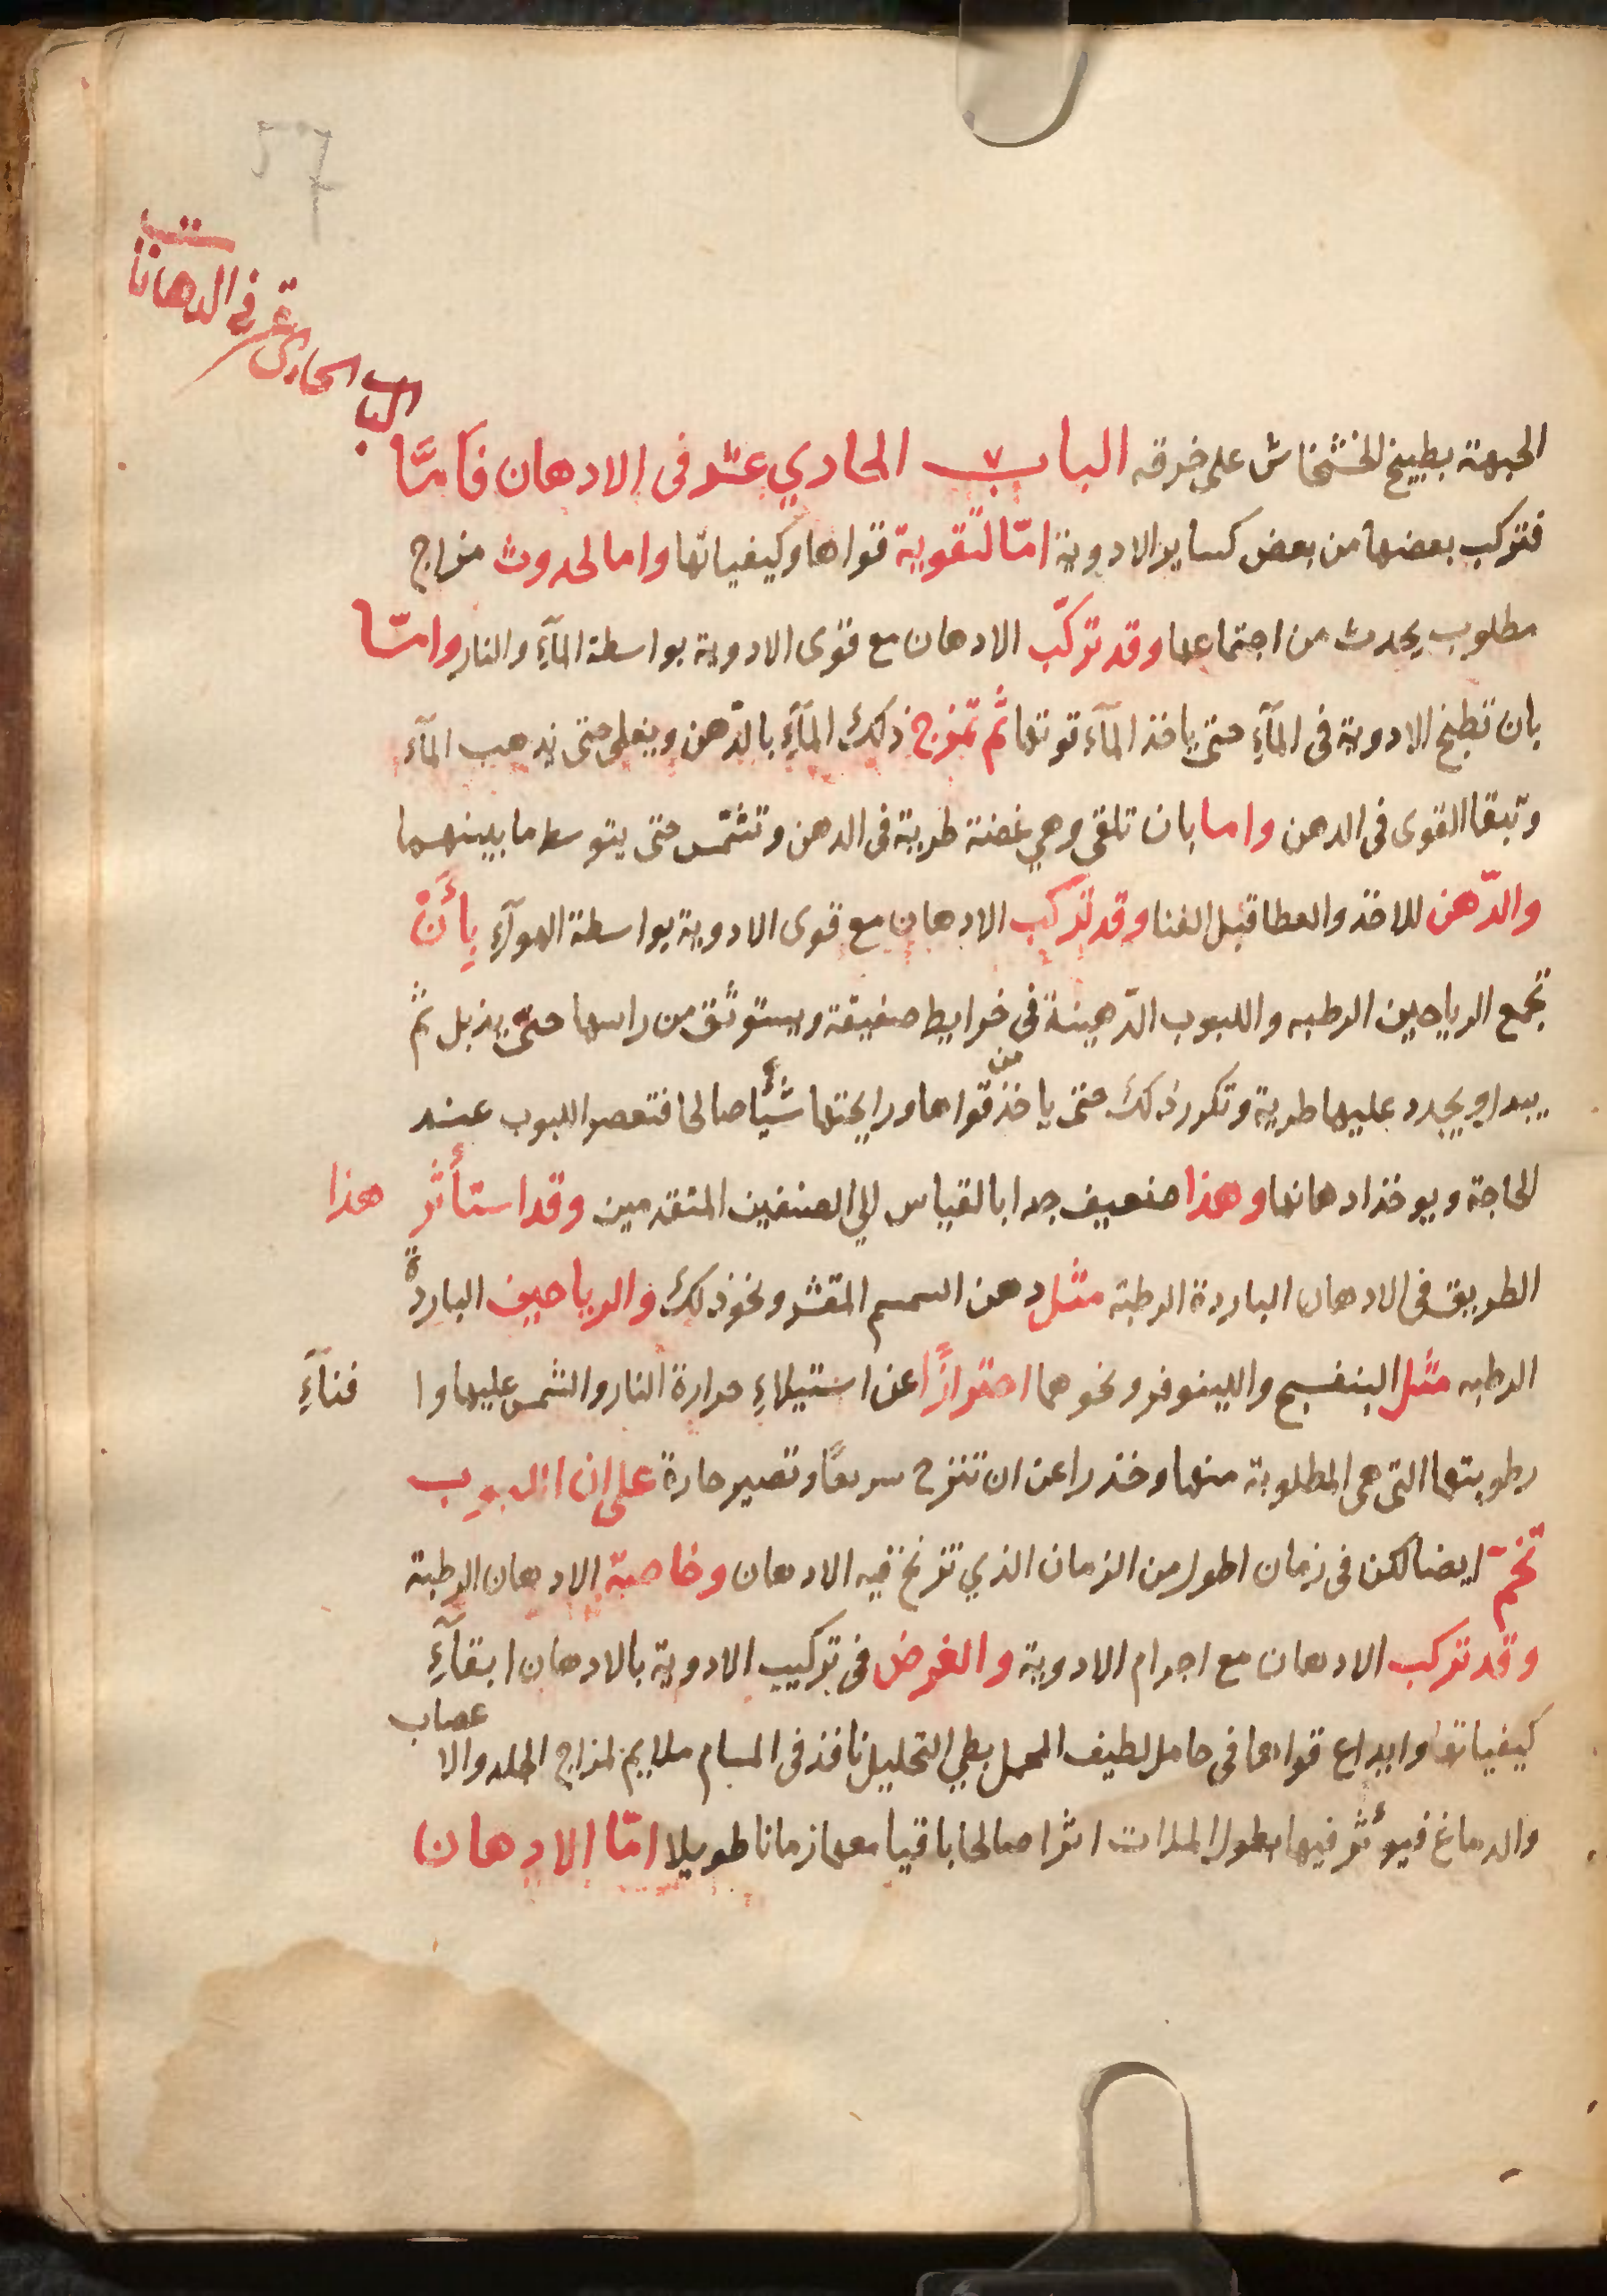 57
الباب الحادي عشر في الدهانات
الجبهة بطبيخ الخشخاش على خرقه الباب الحادي عشر فى الادهان فأمَّا
فتركب بعضها من بعض كساير الادوية امّا لتقوية قواها وكيفياتها واما لحدوث مزاج
مطلوب يحدث من اجتماعها وقد تركّب الادهان مع قوى الادوية بواسطة المآءِ والنار وامّا
بان تطبخ الادوية فى المآءِ حتى ياخذ المآء قوتها ثم تمزج ذلك المآءِ بالدّهن ويغلى حتى يذهب المآء
وتبقا القوى فى الدهن واما بان تلقى وهي غضة طرية فى الدهن وتشمّس حتى يتوسط ما بينهما
والدّهن للاخذ والعطا قبل الفنا وقد تركب الادهان مع قوى الادوية بواسطة الهوآءِ بِأَنْ
تجمع الرياحين الرطبه واللبوب الدّهينة فى خرايط صفيقة ويستوثق من راسها حتّى يذبل ثم
يبدا ويجدد عليها طرية وتكرر ذلك حتى ياخذ من قواها ورايحتها شيأً صالحا فتعصر اللبوب عند
الحاجة ويوخذ ادهانها وهذا ضعيف جدا بالقياس الي الصنفين المتقدمين وقد استأثر هذا
الطريق فى الادهان الباردة الرطبة مثل دهن السمسم المقشر ونحو ذلك والرياحين الباردة
الرطبه مثل البنفسج واللينوفر ونحوهما احترازًا عن استيلاءِ حرارة النار والشمس عليها وا فنآءِ
رطوبتها التى هى المطلوبة منها وخذرا عن ان تنزح سريعًا وتصير حارة على ان اللبوب
تخمّ ايضا لكن فى زمان اطول من الزمان الذي تزنخ فيه الادهان وخاصة الادهان الرطبة
وقد تركب الادهان مع اجرام الادوية والغرض فى تركيب الادوية بالادهان ابقآءِ
كيفياتها وايداع قواها فى حامل لطيف المحمل بطي التحليل نافذ فى المسام ملايم لمزاج الجلد والا عصاب
والدماغ فيؤثر فيها بطول المدات اثرا صالحا باقيا معها زمانا طويلا امّا الادهان